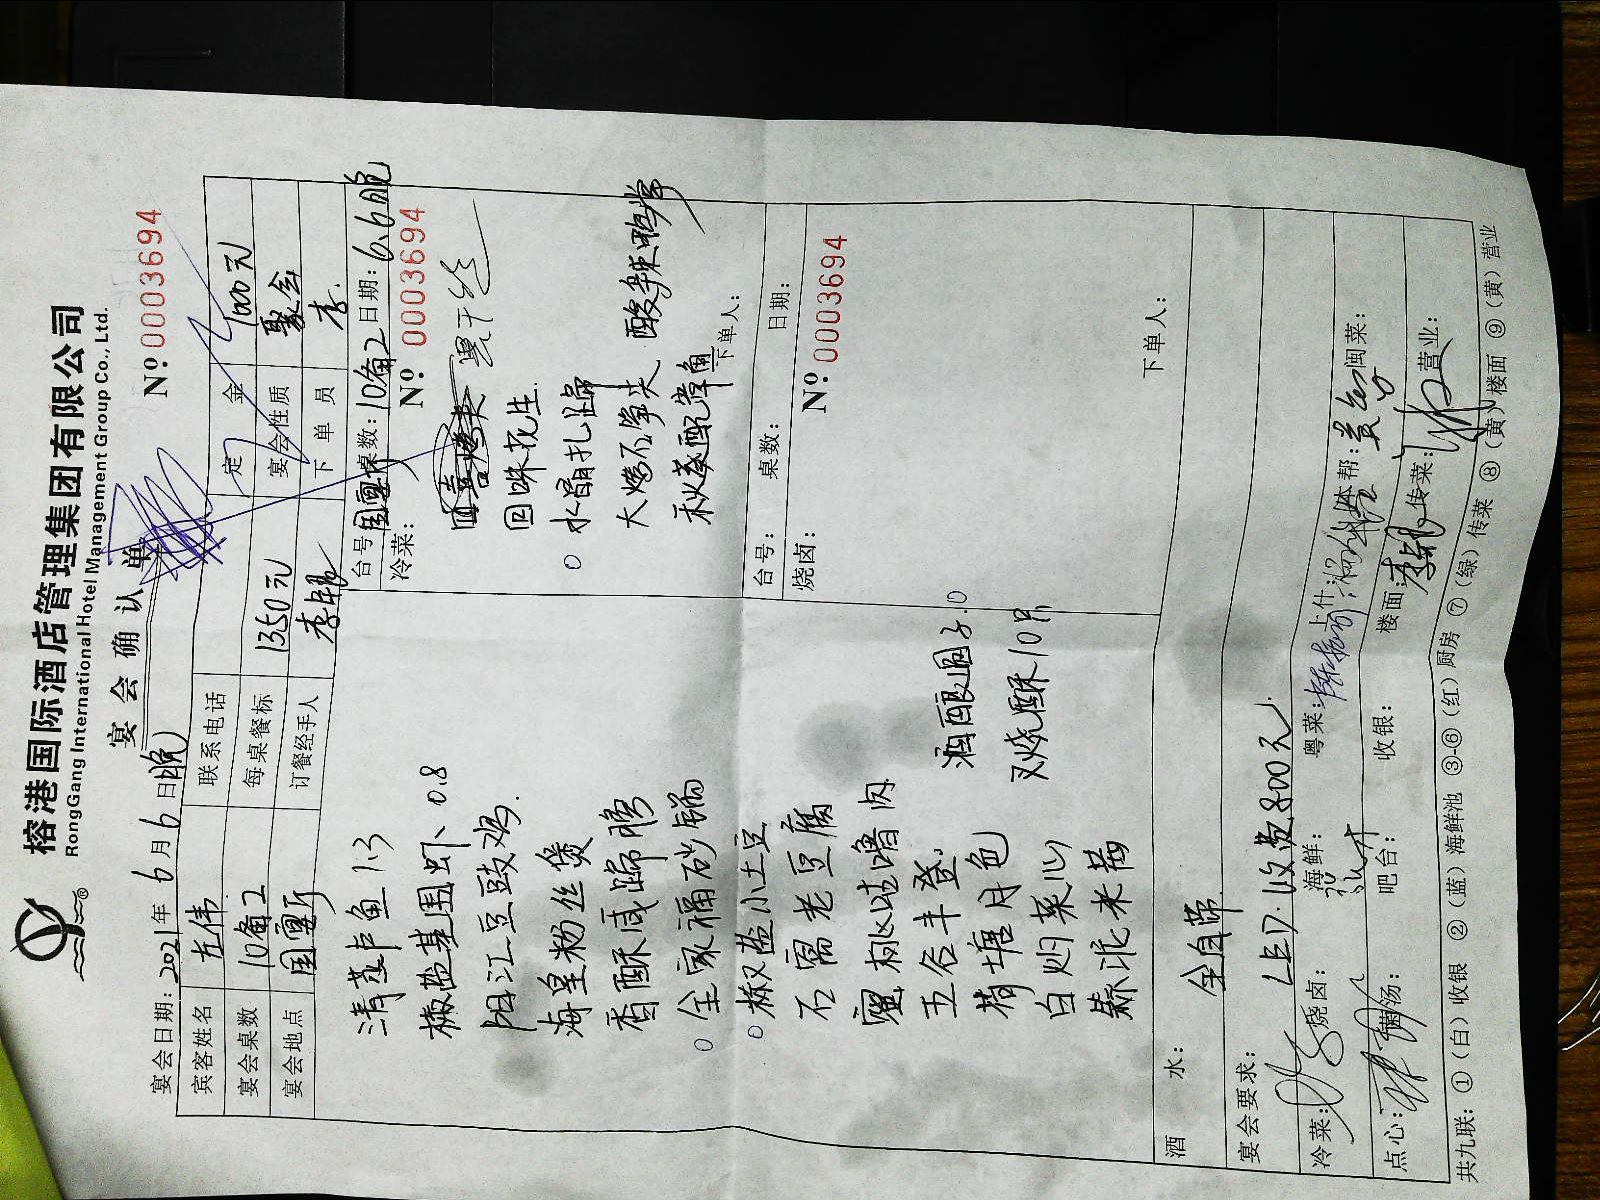 榕港国际酒店管理集团有限公司
RongGang International Hotel Management Group Co., Ltd.
宴会确认单
宴会日期：2021年6月6日晚 Nº 0003694
宾客姓名 左伟 联系电话 定金 1000元
宴会桌数 10备2 每桌餐标 1350元 宴会性质 聚会
宴会地点 国宴厅 订餐经手人 下单员 李
清蒸卢鱼1.3
椒盐基围虾0.8
阳江豆豉鸡
海皇粉丝煲
香酥咸蹄膀
全家福砂锅
椒盐小土豆
石窝老豆腐
蜜桃咕噜肉
五谷丰登
荷塘月色
白灼菜心
酒酿圆子
叉烧酥10只
台号：国宴厅 桌数：10备2 日期：6.6晚
冷菜： Nº 0003694
回味花生
水晶扎蹄
大烤石笋夹
酸辣鸭掌
下单人：
台号： 桌数： 日期：
烧卤： Nº 0003694
下单人：
酒水： 全自带
宴会要求： LED.收费800元
冷菜： 烧卤： 海鲜： 粤菜： 上什： 本帮： 闽菜：
点心： 吧台： 收银： 楼面： 传菜： 营业：
共九联：①（白）收银 ②（蓝）海鲜池 ③-⑥（红）厨房 ⑦（绿）传菜 ⑧（黄）楼面 ⑨（黄）营业